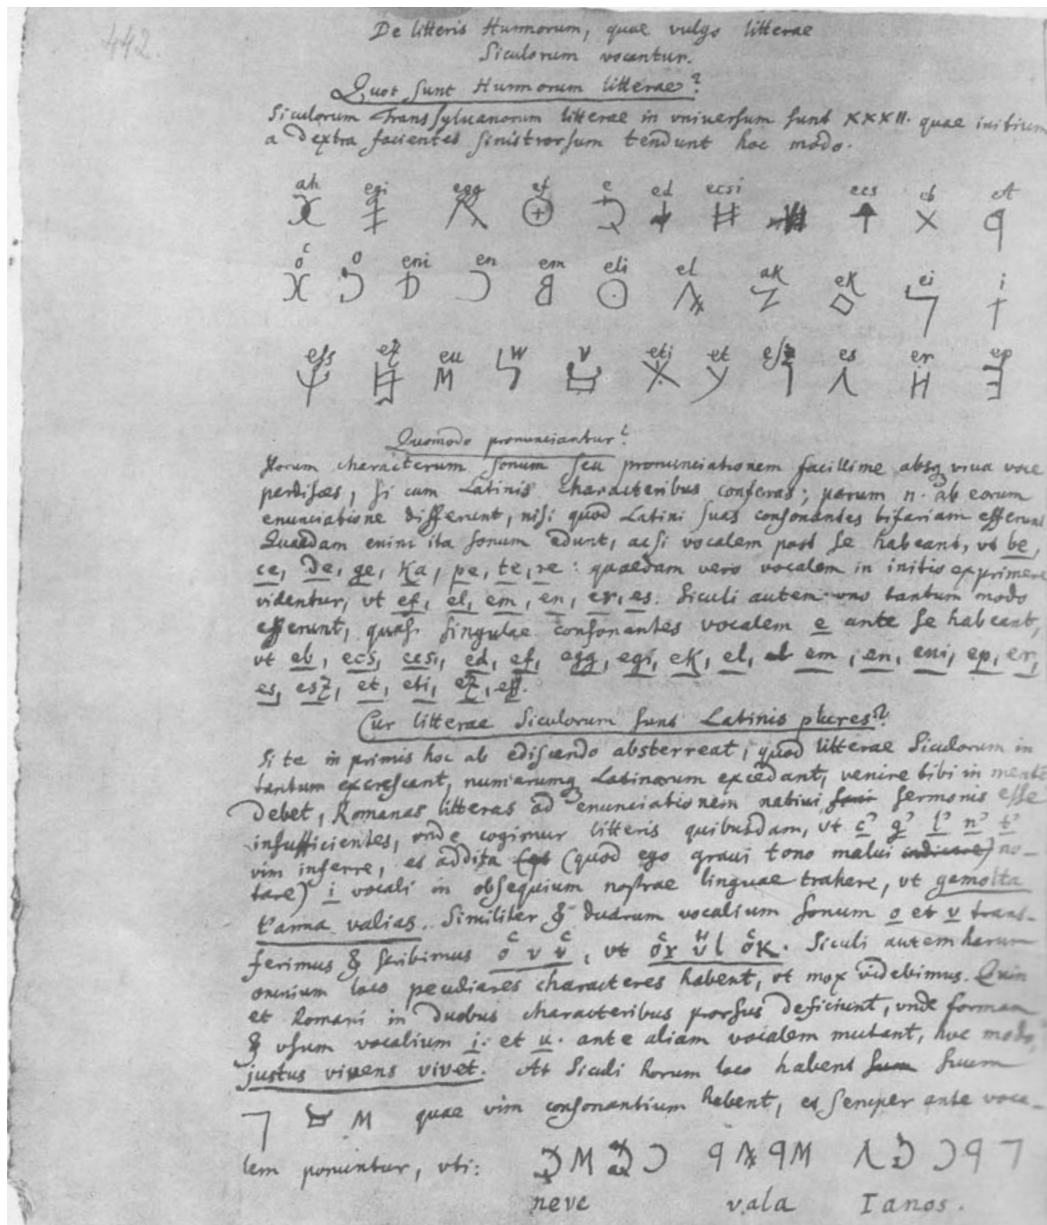 442.
De litteris Hunnorum, quae vulgo litterae
Siculorum vocantur.
Quot sunt Hunnorum litterae?
Siculorum Transsyluanorum litterae in vniuersum sunt XXXII. quae initium
a dextra facientes sinistrorsum tendunt hoc modo.
ah egi egg ef e ed ecsi ecs eb A
ő o eni en em eli el ak ek ei i
ess ez eu w v eti et esz es er ep
Quomodo pronunciantur?
Horum characterum sonum seu pronunciationem facillime absq viua voce
perdisces, si cum Latinis characteribus conferas; parum n. ab eorum
enunciatione differunt, nisi quod Latini suas consonantes bifariam efferunt
Quaedam enim ita sonum edunt, acsi vocalem post se habeant, vt be,
ce, de, ge, ka, pe, te, ze: quaedam vero vocalem in initio exprimere
videntur, vt ef, el, em, en, er, es. Siculi autem vno tantum modo
efferunt, quasi singulae consonantes vocalem e ante se habeant,
vt eb, ecs, ecsi, ed, ef, egg, egi, ek, el, em, en, eni, ep, er,
es, esz, et, eti, ez, ess.
Cur litterae Siculorum sunt Latinis plures?
Si te in primis hoc ab ediscendo absterreat, quod litterae Siculorum in
tantum excrescant, numerumq Latinarum excedant, venire tibi in mente
debet, Romanas litteras ad enunciationem natiui sermonis esse
insufficientes, vnde cogimur litteris quibusdam, vt c' g' l' n' t'
vim inferre, et addita (quod ego graui tono malui no-
tare) i vocali in obsequium nostrae linguae trahere, vt gemolta
t'anna valias. Similiter & duarum vocalium sonum o et v trans-
ferimus & scribimus ő v ű, vt őr űl ők. Siculi autem harum
omnium loco peculiares characteres habent, vt mox videbimus. Quin
et Romani in duobus characteribus prorsus deficiunt, vnde formam
& vsum vocalium i. et u. ante aliam vocalem mutant, hoc modo,
justus vivens vivet. At Siculi horum loco habent suum
quae vim consonantium habent, et semper ante voca-
lem ponuntur, vti:
neve vala Ianos.